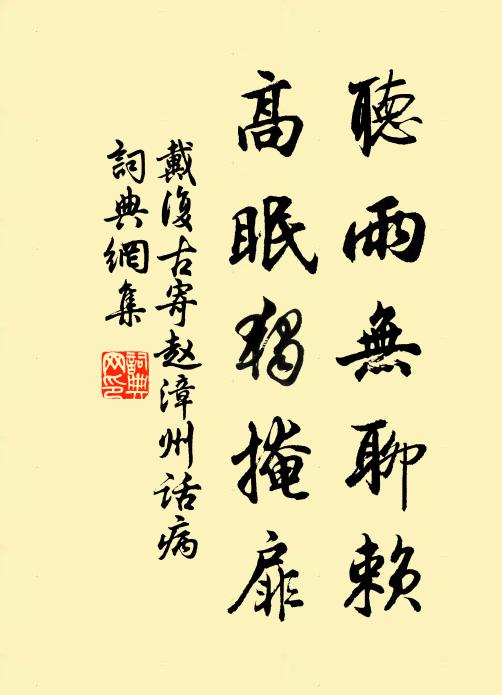 聽雨無聊賴
高眠獨掩扉
戴復古寄赵漳州话病
詞典網集
詞典網印